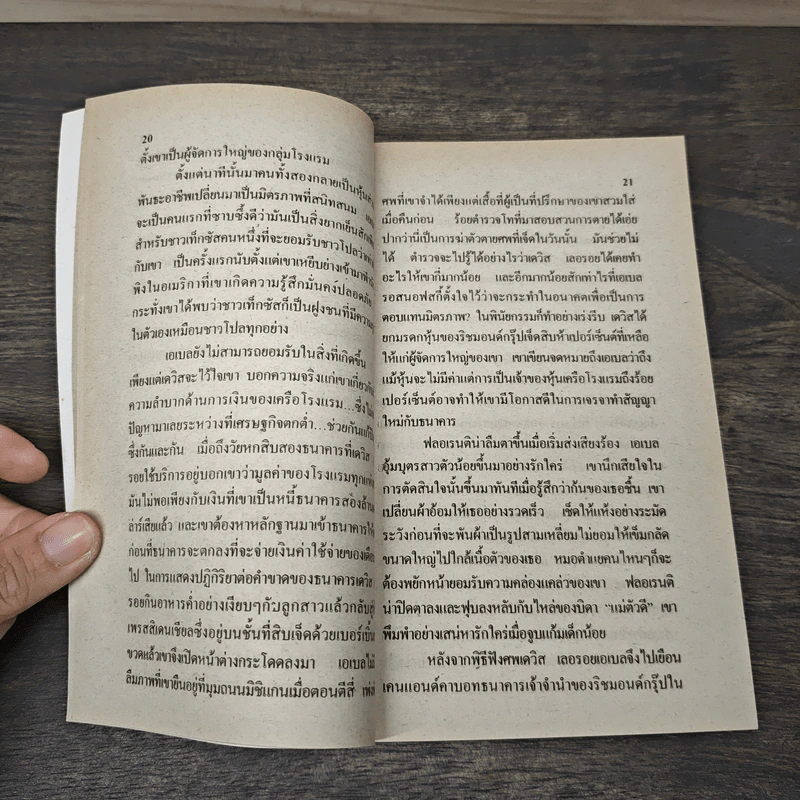 20
ตั้งเขาเป็นผู้จัดการใหญ่ของกลุ่มโรงแรม
ตั้งแต่นาทีนั้นมาคนทั้งสองกลายเป็นหุ้นส่วน
พันธะอาชีพเปลี่ยนมาเป็นมิตรภาพที่สนิทสนม
จะเป็นคนแรกที่ซาบซึ้งดีว่ามันเป็นสิ่งยากเย็น
สำหรับชาวเท็กซัสคนหนึ่งที่จะยอมรับชาวโปล
กับเขา เป็นครั้งแรกนับตั้งแต่เขาเหยียบย่างเข้ามา
พิงในอเมริกาที่เขาเกิดความรู้สึกมั่นคงปลอดภัย
กระทั่งเขาได้พบว่าชาวเท็กซัสก็เป็นฝูงชนที่มีความ
ในตัวเองเหมือนชาวโปลทุกอย่าง
เอเบลยังไม่สามารถยอมรับในสิ่งที่เกิดขึ้น
เพียงแต่เดวิสจะไว้ใจเขา บอกความจริงแก่เขาเกี่ยวกับ
ความลำบากด้านการเงินของเครือโรงแรม...ซึ่ง
ปัญหามาเลยระหว่างที่เศรษฐกิจตกต่ำ...ช่วยกันแก้
ซึ่งกันและกัน เมื่อถึงวัยหกสิบสองธนาคารที่เดวิส
รอยใช้บริการอยู่บอกเขาว่ามูลค่าของโรงแรมทุก
มันไม่พอเพียงกับเงินที่เขาเป็นหนี้ธนาคารสองล้าน
ล่าร์เสียแล้ว และเขาต้องหาหลักฐานมาเข้าธนาคาร
ก่อนที่ธนาคารจะตกลงที่จะจ่ายเงินค่าใช้จ่ายของเดือน
ไป ในการแสดงปฏิกิริยาต่อคำขาดของธนาคารเดวิส
รอยกินอาหารค่ำอย่างเงียบๆกับลูกสาวแล้วกลับ
เพรสสิเดนเชียลซึ่งอยู่บนชั้นที่สิบเจ็ดด้วยเบอร์เบิ้น
ขวดแล้วเขาจึงเปิดหน้าต่างกระโดดลงมา เอเบล
ลืมภาพที่เขายืนอยู่ที่มุมถนนมิชิแกนเมื่อตอนตีสี่
21
ศพที่เขาจำได้เพียงแต่เสื้อที่ผู้เป็นที่ปรึกษาของเขาสวมใส่
เมื่อคืนก่อน ร้อยตำรวจโทที่มาสอบสวนการตายได้เอ่ย
ปากว่านี่เป็นการฆ่าตัวตายศพที่เจ็ดในวันนั้น มันช่วยไม่
ได้ ตำรวจจะไปรู้ได้อย่างไรว่าเดวิส เลอรอยได้เคยทำ
อะไรให้เขากี่มากน้อย และอีกมากน้อยสักเท่าไรที่เอเบล
รอสนอฟสกี้ตั้งใจไว้ว่าจะกระทำในอนาคตเพื่อเป็นการ
ตอบแทนมิตรภาพ? ในพินัยกรรมก็ทำอย่างเร่งรีบ เดวิสได้
ยกมรดกหุ้นของริชมอนด์กรุ๊ปเจ็ดสิบห้าเปอร์เซ็นต์ที่เหลือ
ให้แก่ผู้จัดการใหญ่ของเขา เขาเขียนจดหมายถึงเอเบลว่าถึง
แม้หุ้นจะไม่มีค่าแต่การเป็นเจ้าของหุ้นเครือโรงแรมถึงร้อย
เปอร์เซ็นต์อาจทำให้เขามีโอกาสดีในการเจรจาทำสัญญา
ใหม่กับธนาคาร
ฟลอเรนติน่าลืมตาขึ้นเมื่อเริ่มส่งเสียงร้อง เอเบล
อุ้มบุตรสาวตัวน้อยขึ้นมาอย่างรักใคร่ เขานึกเสียใจใน
การตัดสินใจนั้นขึ้นมาทันทีเมื่อรู้สึกว่าก้นของเธอชื้น เขา
เปลี่ยนผ้าอ้อมให้เธออย่างรวดเร็ว เช็ดให้แห้งอย่างระมัด
ระวังก่อนที่จะพันผ้าเป็นรูปสามเหลี่ยมไม่ยอมให้เข็มกลัด
ขนาดใหญ่ไปใกล้เนื้อตัวของเธอ หมอตำแยคนไหนๆก็จะ
ต้องพยักหน้ายอมรับความคล่องแคล่วของเขา ฟลอเรนติ
น่าปิดตาลงและฟุบลงหลับกับไหล่ของบิดา "แม่ตัวดี" เขา
พึมพำอย่างเสน่หารักใคร่เมื่อจูบแก้มเด็กน้อย
หลังจากพิธีฝังศพเดวิส เลอรอยเอเบลจึงไปเยือน
เคนแอนด์คาบอทธนาคารเจ้าจำนำของริชมอนด์กรุ๊ปใน